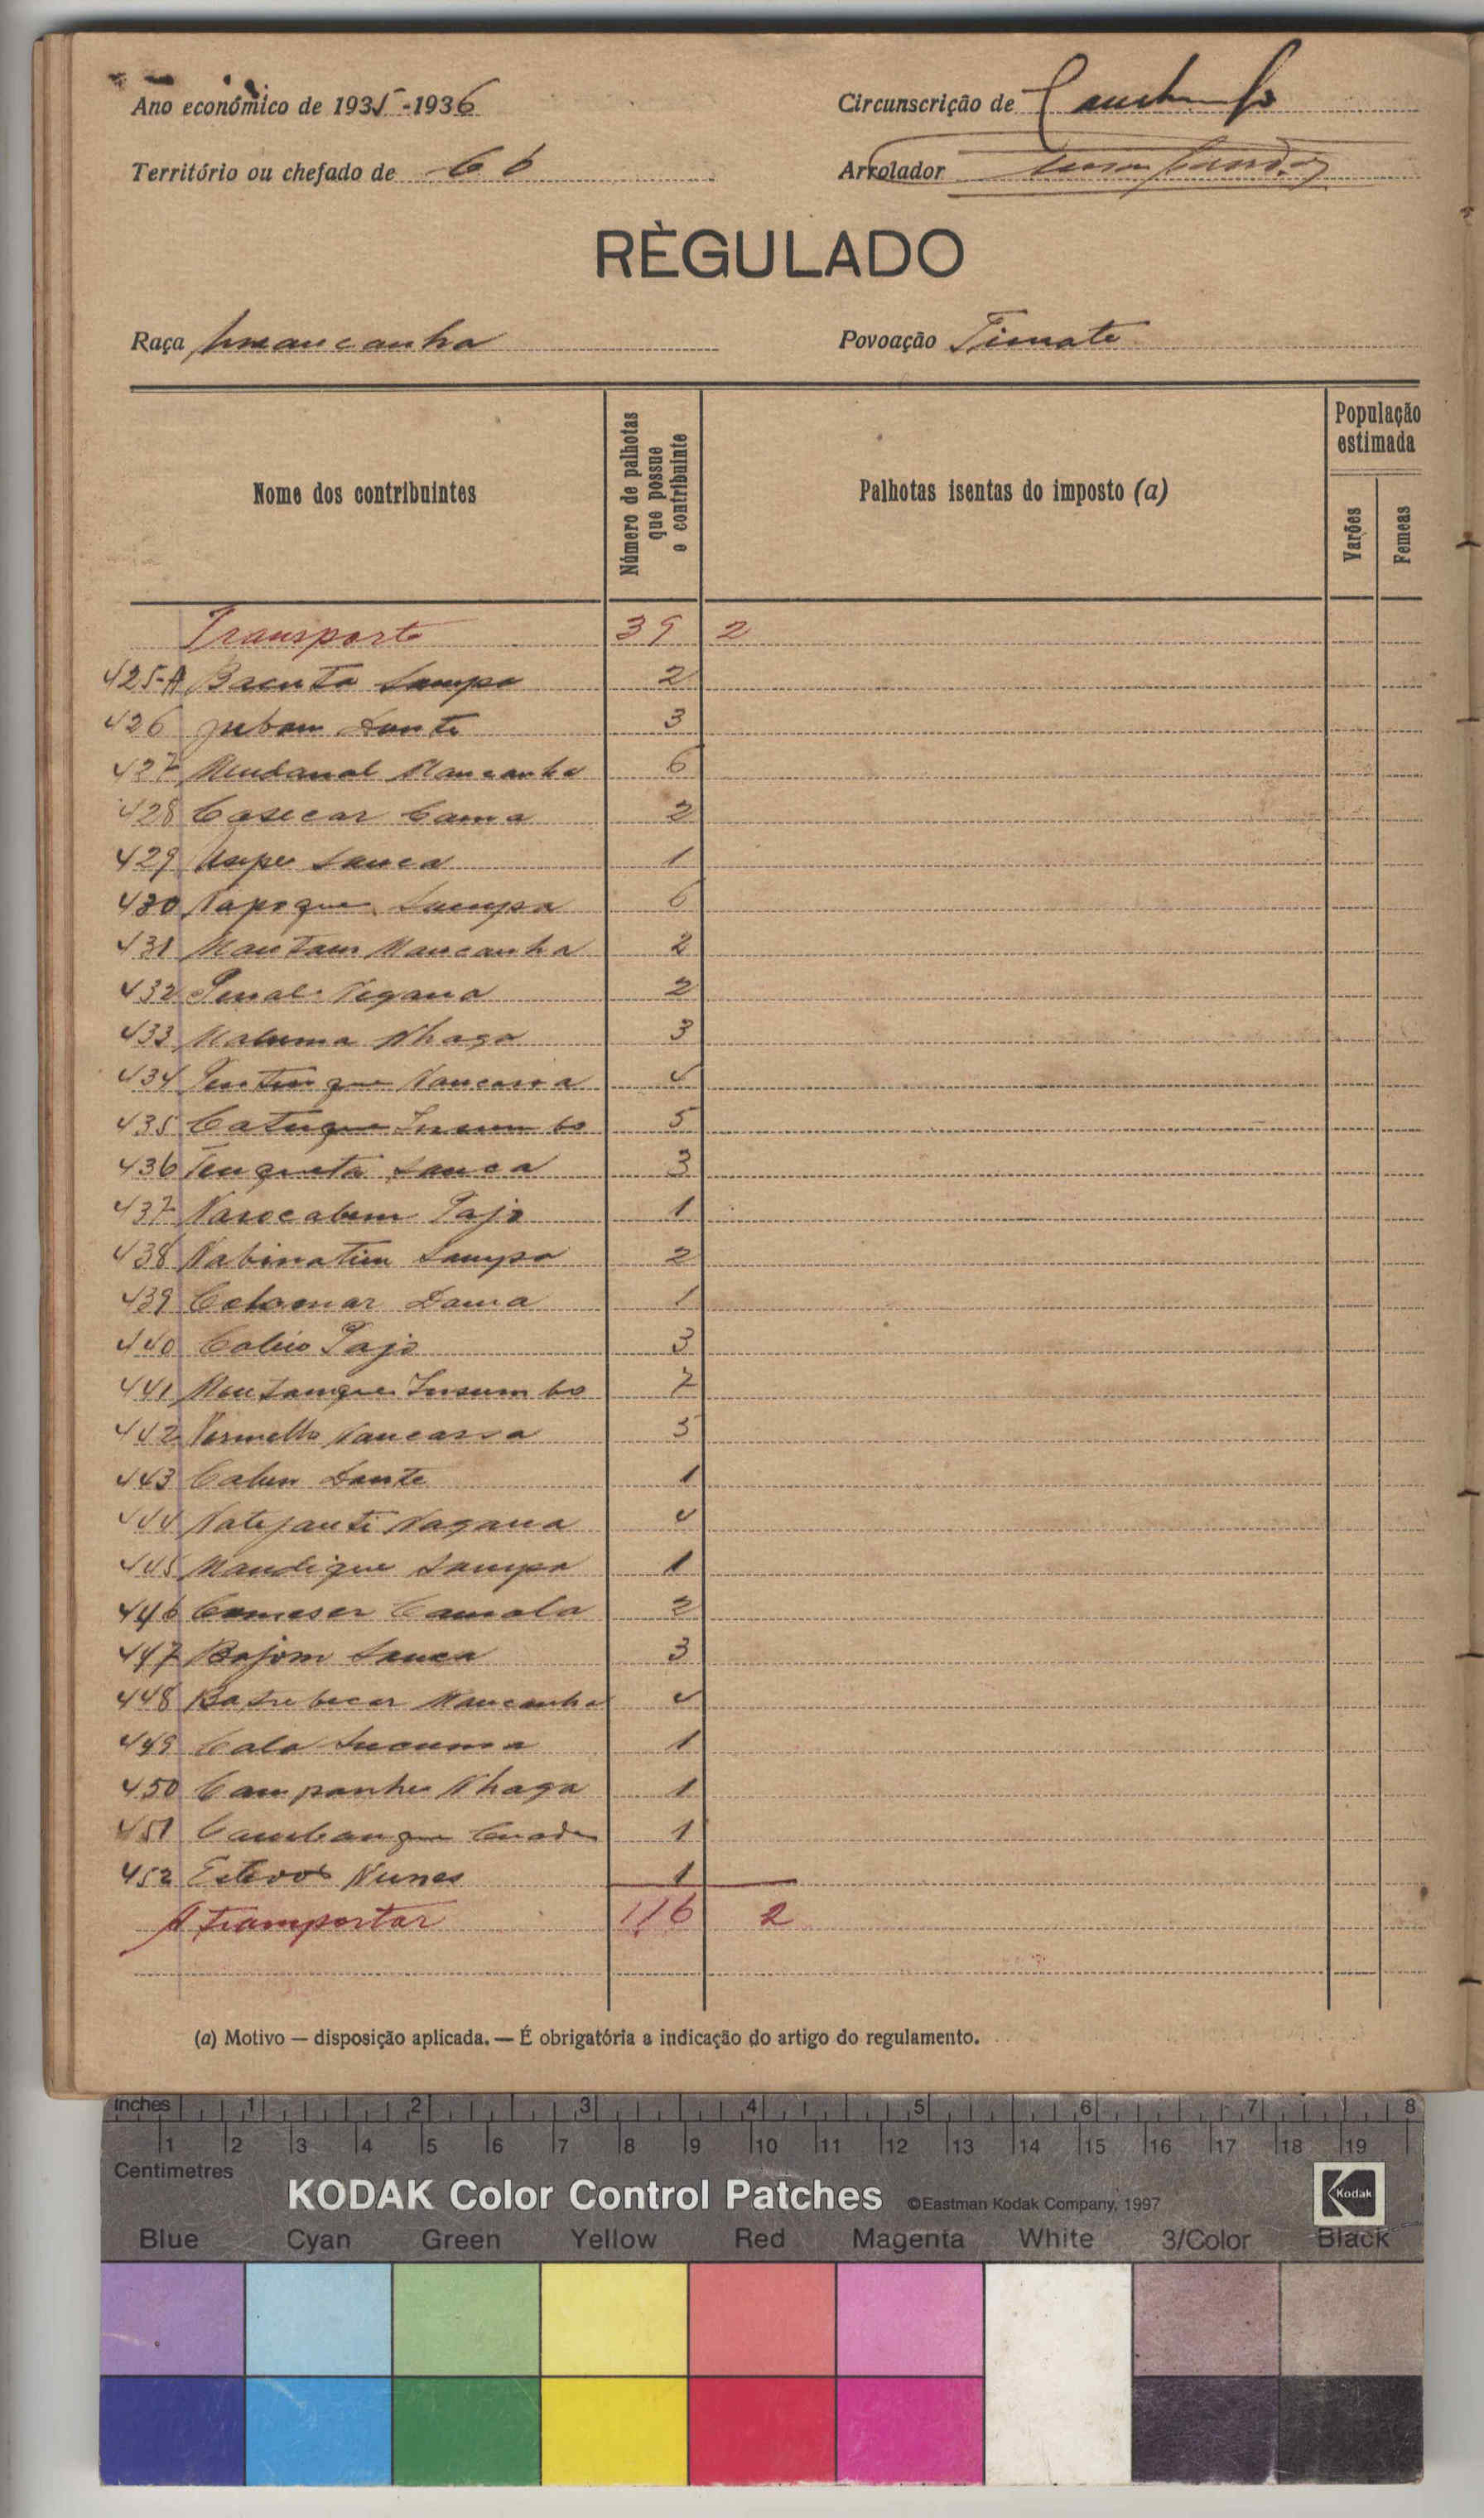 Ano económico de 1935-1936
Circunscrição de
Território ou chefado de Có
Arrolador
RÈGULADO
Raça Mancanha
Povoação Timate
Nome dos contribuintes
Número de palhotas que possue o contribuinte
Palhotas isentas do imposto (a)
População estimada
Varões
Femeas
Transporte 39 2
425-A Bacuta Sampa 2
426 Juban Dante 3
427 Mancanha 6
428 Casecar Cama 2
429 Sanca 1
430 Napoque Sampa 6
431 Mantam Mancanha 2
432 2
433 Maluma Nhaga 3
434 Nancassa 4
435 Catuque Insumbo 5
436 Sanca 3
437 Pajo 1
438 Nabinatim Sampa 2
439 Dama 1
440 Pajo 3
441 Insumbo 7
442 Vermelho Nancassa 5
443 Dante 1
444 Nagana 4
445 Mandique Sampa 1
446 2
447 Bojom Sanca 3
448 Mancanha 4
449 1
450 Campanhe Nhaga 1
451 Cambanque 1
452 Nunes 1
A transportar 116 2
(a) Motivo — disposição aplicada. — É obrigatória a indicação do artigo do regulamento.
inches 1 2 3 4 5 6 7 8
1 2 3 4 5 6 7 8 9 10 11 12 13 14 15 16 17 18 19
Centimetres
KODAK Color Control Patches ©Eastman Kodak Company, 1997 Kodak
Blue Cyan Green Yellow Red Magenta White 3/Color Black